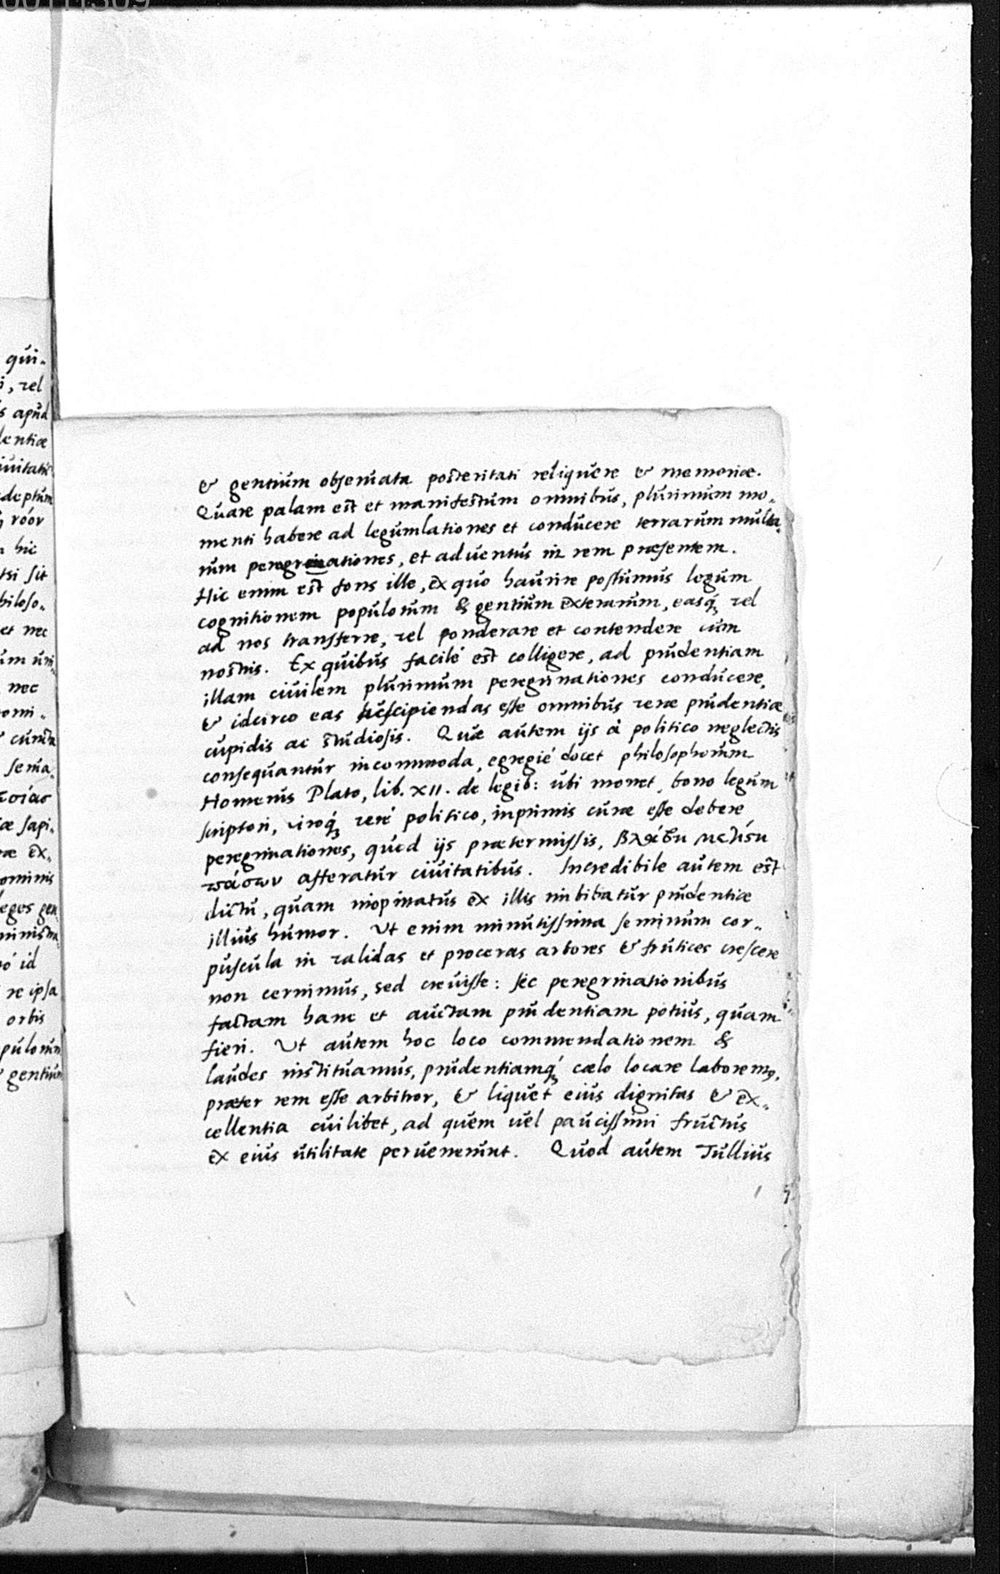 & gentium observata posteritati reliquere & memoriæ.
Quare palam est et manifestum omnibus, plurimum mo-
menti habere ad legumlationes et conducere terrarum multa-
rum peregrinationes, et adventus in rem præsentem.
Hic enim est fons ille, ex quo haurire possumus legum
cognitionem populorum & gentium exterarum, easq́ꝫ vel
ad nos transferre, vel ponderare et contendere cum
nostris. Ex quibus facile est colligere, ad prudentiam
illam civilem plurimum peregrinationes conducere,
& idcirco eas suscipiendas esse omnibus veræ prudentiæ
cupidis ac studiosis. Quæ autem ijs à politico neglectis
consequantur incommoda, egregié docet philosophorum
Homerus Plato, lib. XII. de legib: ubi monet, bono legum
scriptori, viroq́ꝫ veré politico, inprimis curæ esse debere
peregrinationes, quod ijs prætermissis, βλάβη μεγίστη
πασῶν afferatur civitatibus. Incredibile autem est
dictu, quam inopinatus ex illis imbibatur prudentiæ
illius humor. Ut enim minutissima seminum cor-
puscula in validas et proceras arbores & frutices crescere
non cernimus, sed crevisse: sic peregrinationibus
factam hanc et auctam prudentiam potius, quam
fieri. Ut autem hoc loco commendationem &
laudes instituamus, prudentiamq́ꝫ cælo locare laboremꝰ,
præter rem esse arbitror, & liquet eius dignitas & ex-
cellentia cuilibet, ad quem vel paucissimi fructus
ex eius utilitate pervenerunt. Quod autem Tullius